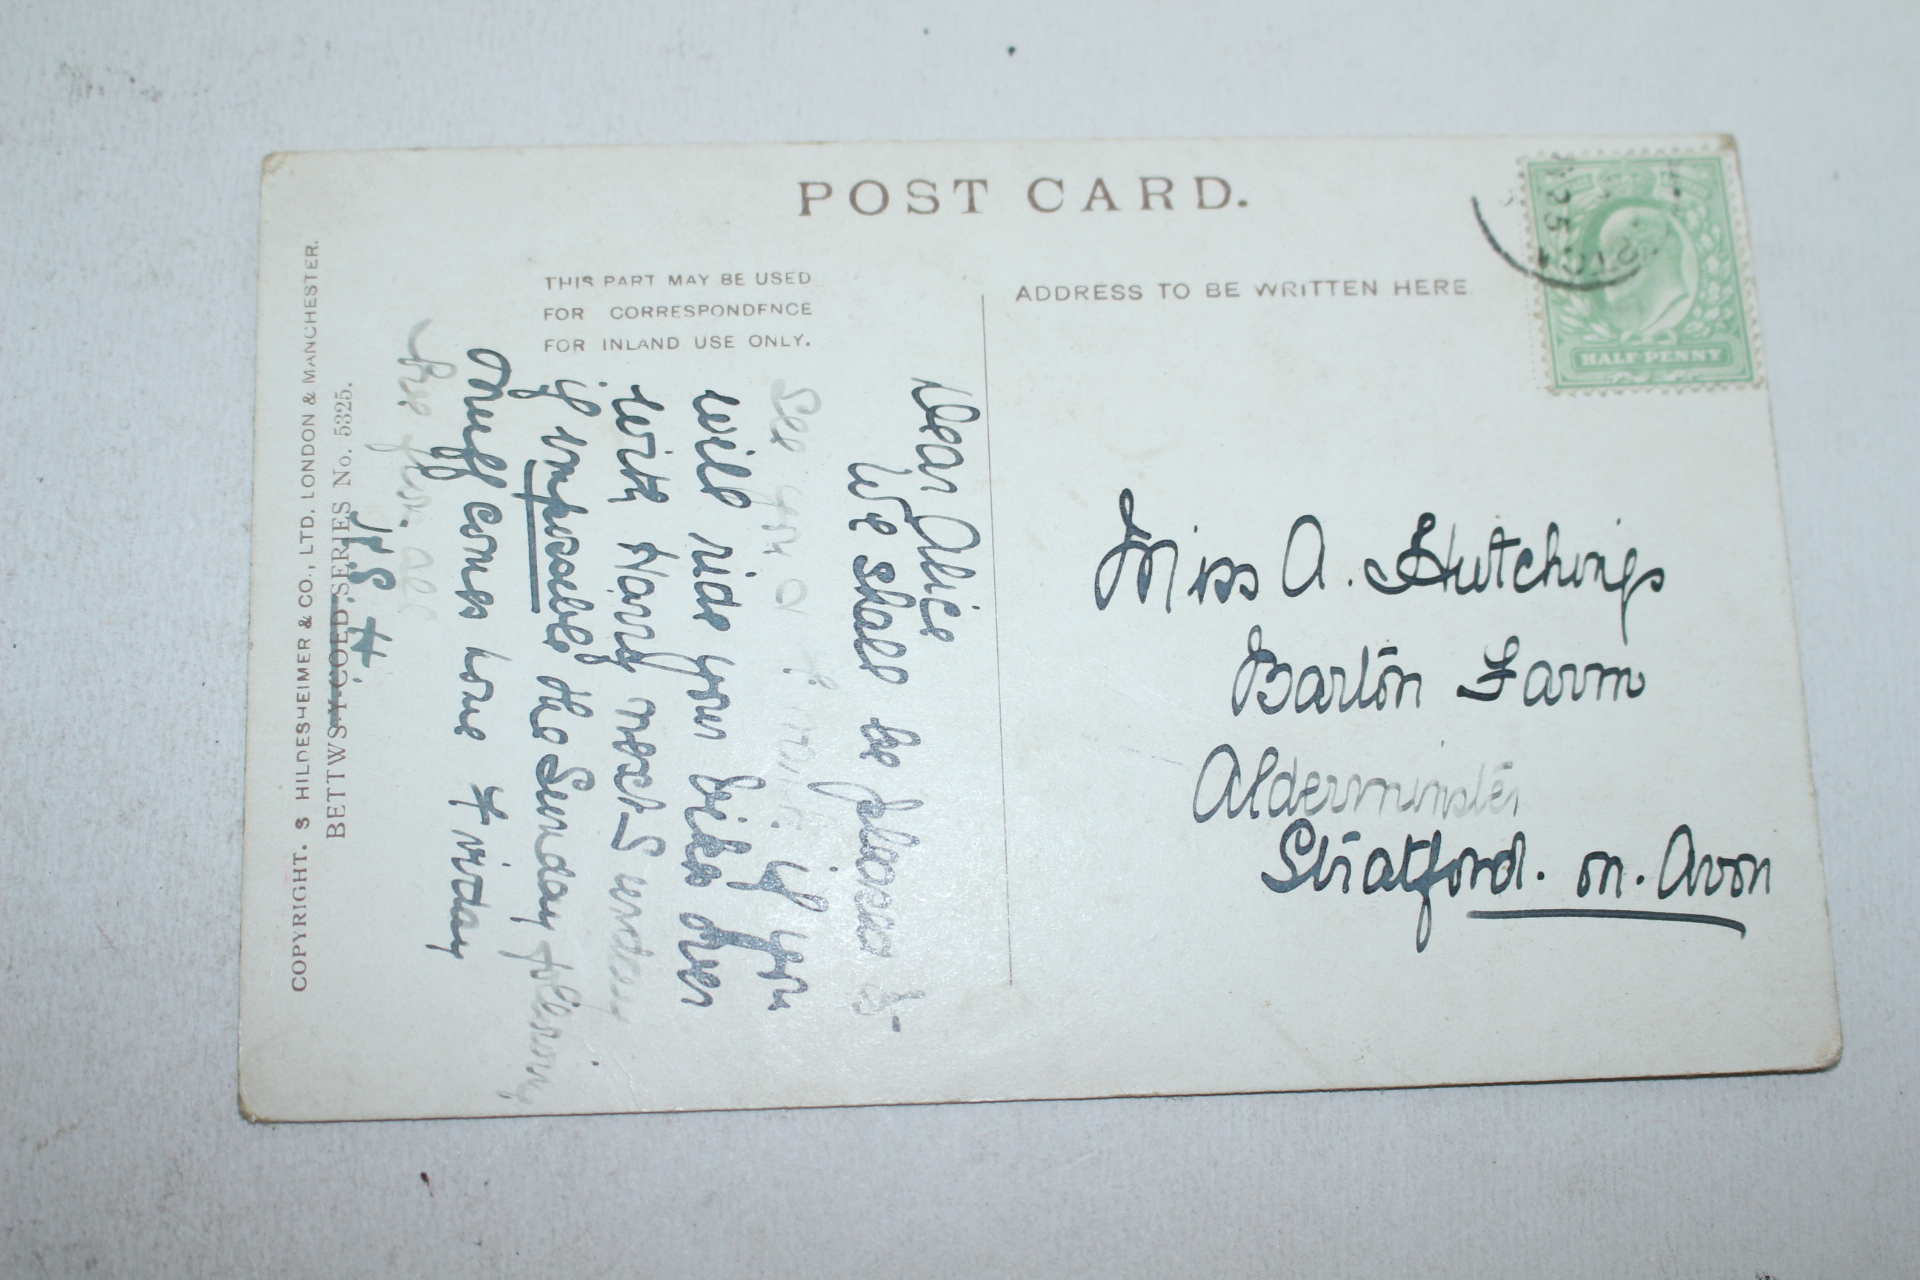 POST CARD.
THIS PART MAY BE USED
FOR CORRESPONDENCE
FOR INLAND USE ONLY.
ADDRESS TO BE WRITTEN HERE
HALF PENNY
COPYRIGHT. S HILDESHEIMER & CO., LTD. LONDON & MANCHESTER.
BETTWS-Y-COED. SERIES No. 5325.
Dear Alice
We shall be pleased to
see you if you
will ride your bike over
with Harry next Sunday
if impossible the Sunday following
Muff comes home Friday
from all
J. S. H.
Miss A. Hutchings
Barton Farm
Alderminster
Stratford. on. Avon